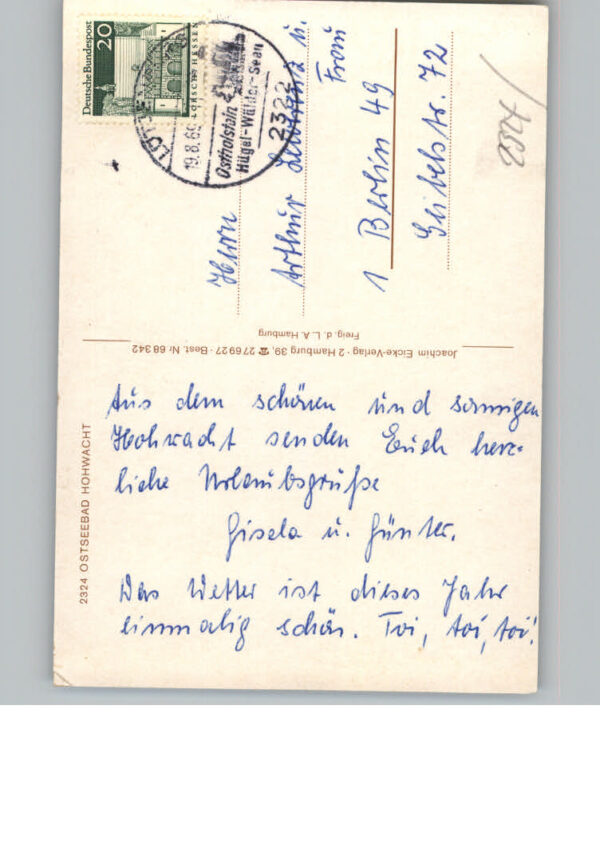 Deutsche Bundespost
20
LORSCH HESSEN
LÜTJE
19.8.69
Ostholstein
Hügel-Wälder-Seen
2322
Herrn
Arthur u.
Frau
1 Berlin 49
Geibelstr. 72
Joachim Eicke-Verlag · 2 Hamburg 39, ☎ 276927 · Best. Nr. 68342
Freig. d. L. A. Hamburg
2324 OSTSEEBAD HOHWACHT
Aus dem schönen und sonnigen
Hohwacht senden Euch herz-
liche Urlaubsgrüße
Gisela u. Günter.
Das Wetter ist dieses Jahr
einmalig schön. Toi, toi, toi!